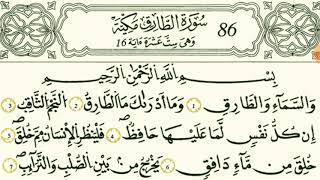 سُورَةُ الطَّارِقِ مَكِّيَّةٌ 86
وَهِيَ سِتَّ عَشْرَةَ ءَايَةً 16
بِسْمِ اللَّهِ الرَّحْمَٰنِ الرَّحِيمِ
وَالسَّمَآءِ وَالطَّارِقِ 1 وَمَآ أَدْرَىٰكَ مَا الطَّارِقُ 2 النَّجْمُ الثَّاقِبُ 3
إِن كُلُّ نَفْسٍ لَّمَّا عَلَيْهَا حَافِظٌ 4 فَلْيَنظُرِ الْإِنسَٰنُ مِمَّ خُلِقَ 5
خُلِقَ مِن مَّآءٍ دَافِقٍ 6 يَخْرُجُ مِنۢ بَيْنِ الصُّلْبِ وَالتَّرَآئِبِ 7